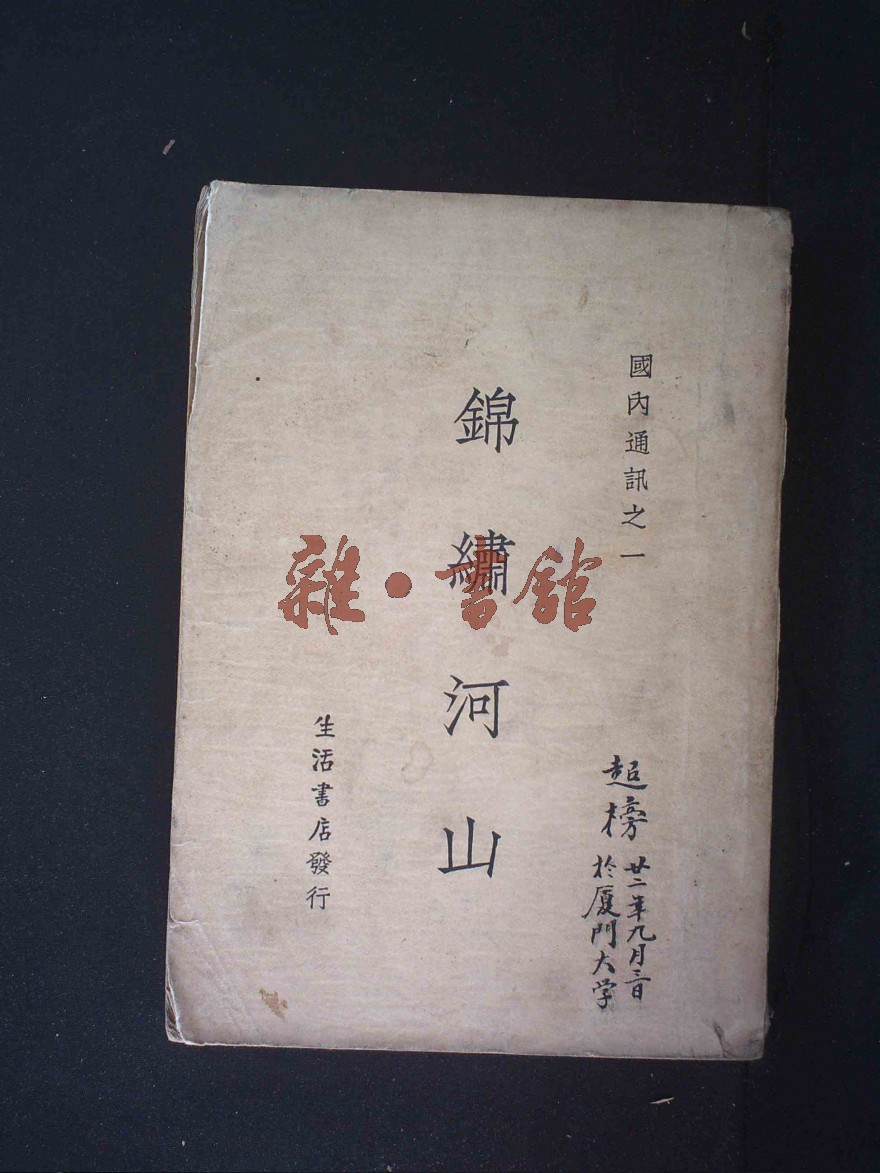 國內通訊之一
錦繡河山
生活書店發行
超榜
廿二年九月三日
於厦門大学
雜·書館